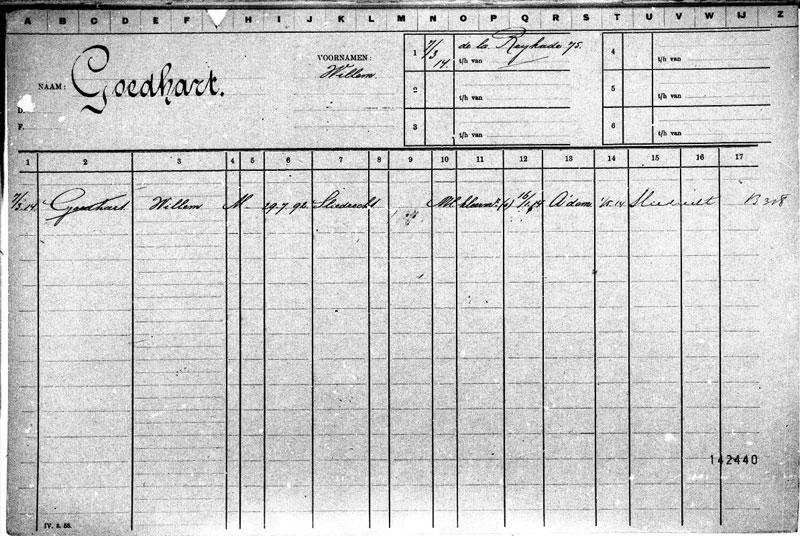 A B C D E F H I J K L M N O P Q R S T U V W IJ Z
NAAM: Goedhart.
D.
F.
VOORNAMEN:
Willem.
1 7/3 14. de la Reykade 75.
t/h van
2
t/h van
3
t/h van
4
t/h van
5
t/h van
6
t/h van
1 2 3 4 5 6 7 8 9 10 11 12 13 14 15 16 17
7/3.14 Goedhart Willem M - 29.7.92 Sliedrecht NH A'dam Sliedrecht B 308
142440
IV. 3. 55.